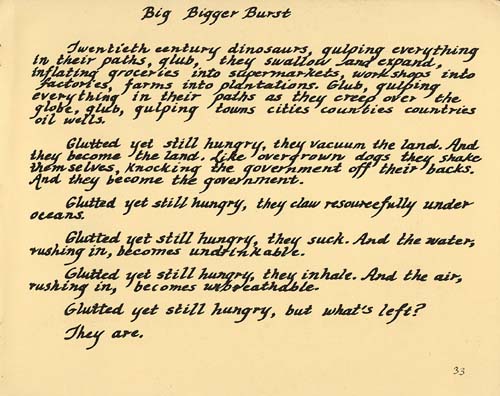 Big Bigger Burst
Twentieth century dinosaurs, gulping everything
in their paths, glub, they swallow and expand,
inflating groceries into supermarkets, workshops into
factories, farms into plantations. Glub, gulping
everything in their paths as they creep over the
globe, glub, gulping towns cities counties countries
oil wells.
Glutted yet still hungry, they vacuum the land. And
they become the land. Like overgrown dogs they shake
themselves, knocking the government off their backs.
And they become the government.
Glutted yet still hungry, they claw resourcefully under
oceans.
Glutted yet still hungry, they suck. And the water,
rushing in, becomes undrinkable.
Glutted yet still hungry, they inhale. And the air,
rushing in, becomes unbreathable.
Glutted yet still hungry, but what's left?
They are.
33